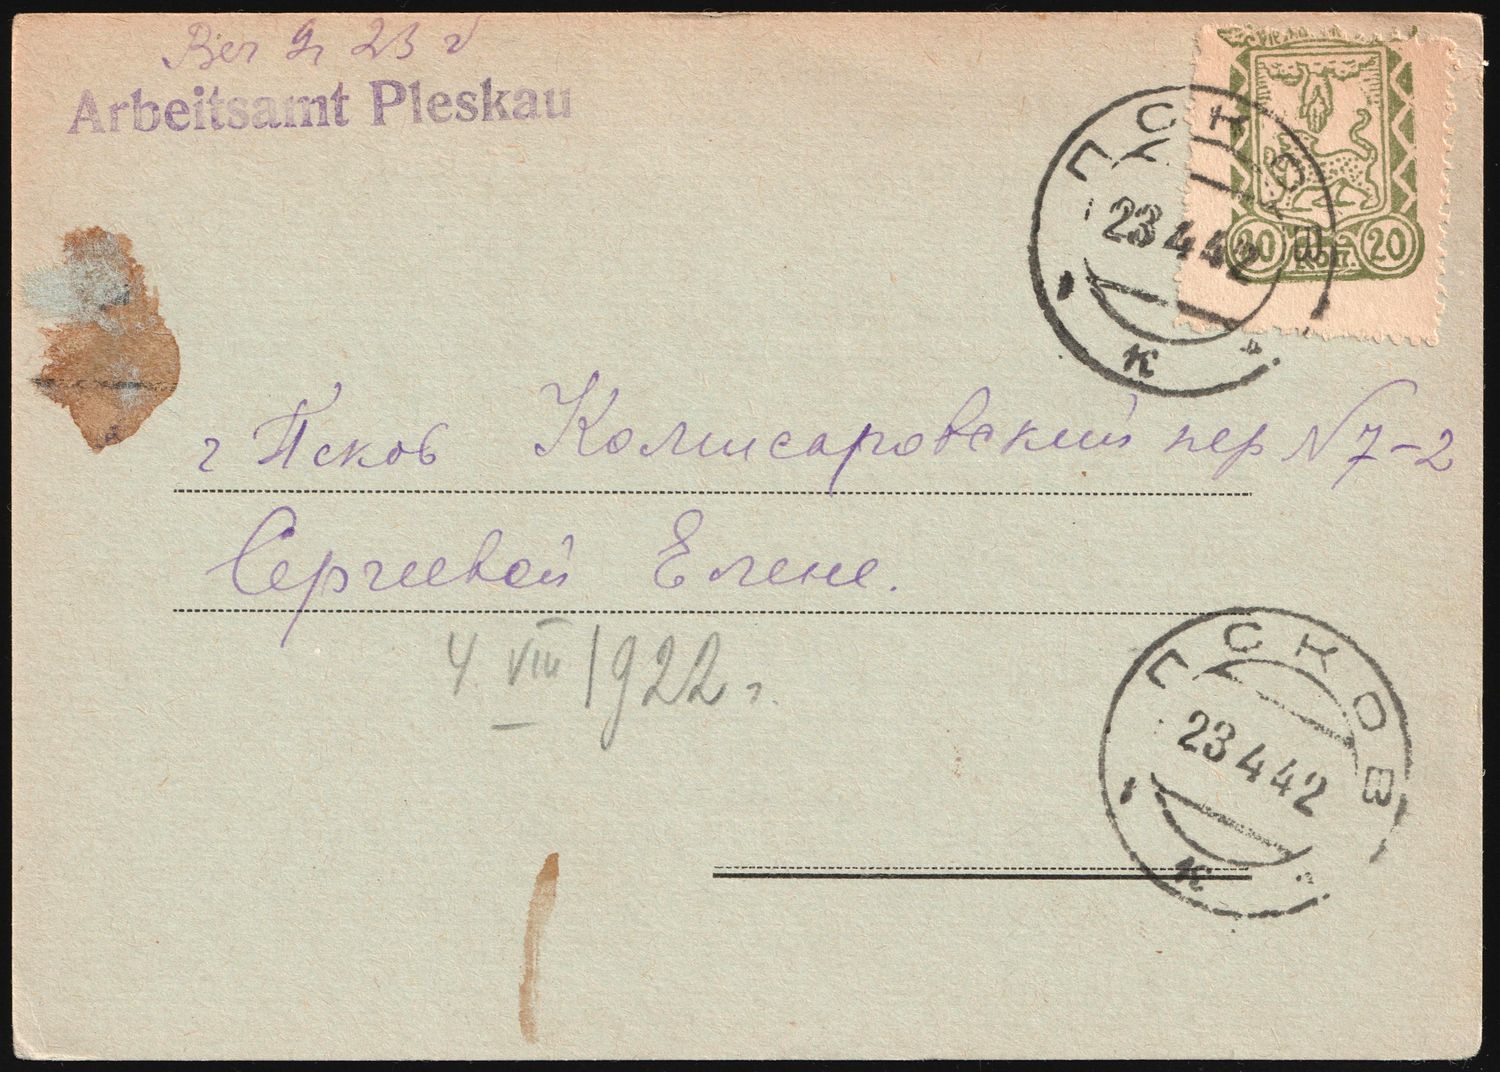 23
Arbeitsamt Pleskau
20 20
ПСКОВ
23 4 42
к
г Псков Комисаровский пер N 7-2
Сергеевой Елене.
4 VIII 1922 г.
ПСКОВ
23 4 42
к